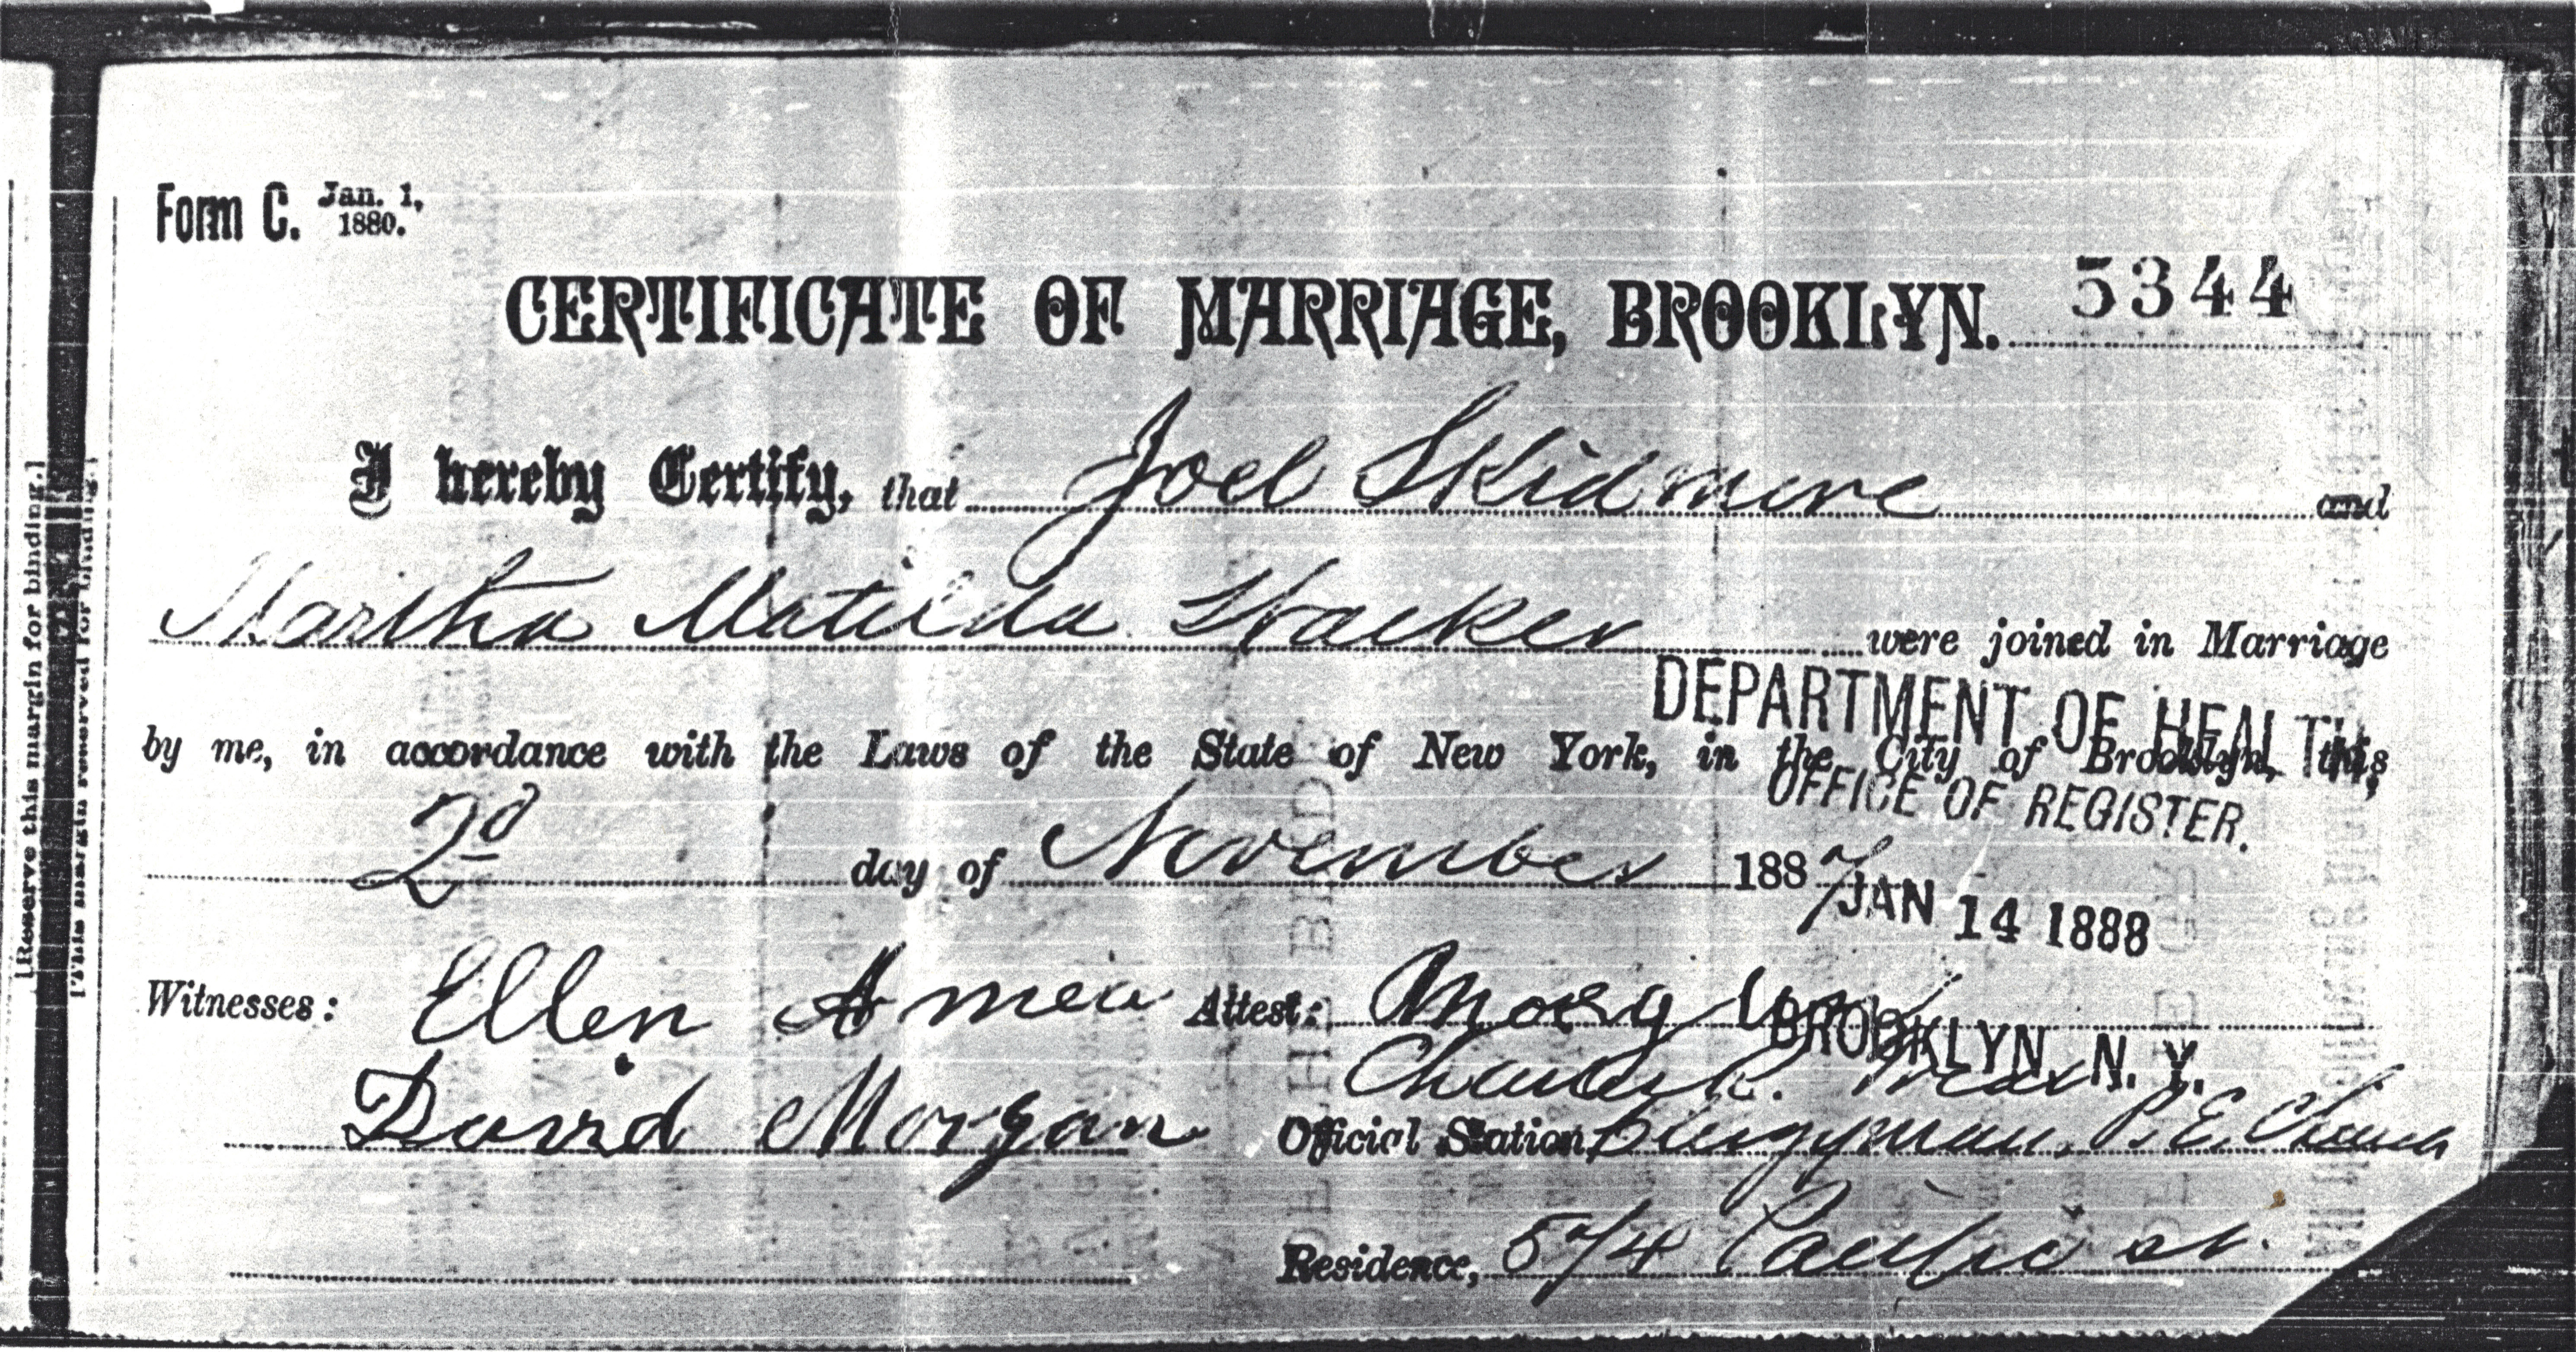 Form C. Jan. 1, 1880.
CERTIFICATE OF MARRIAGE, BROOKLYN. 5344
I hereby Certify, that Joel Skidmore and
Martha Matilda Hacker were joined in Marriage
by me, in accordance with the Laws of the State of New York, in the City of Brooklyn, this
2d day of November 1887
DEPARTMENT OF HEALTH,
OFFICE OF REGISTER.
JAN 14 1888
BROOKLYN, N. Y.
Witnesses: Ellen Attest:
David Morgan
Official Station Clergyman, P. E. Church
Residence, 574 Pacific st.
[Reserve this margin for binding.]
[This margin reserved for binding.]